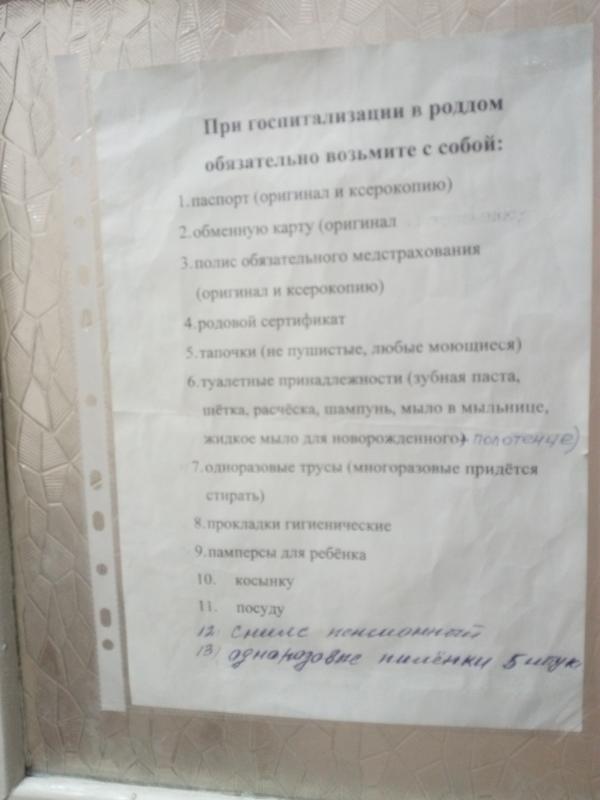 При госпитализации в роддом
обязательно возьмите с собой:
1.паспорт (оригинал и ксерокопию)
2.обменную карту (оригинал
3.полис обязательного медстрахования
(оригинал и ксерокопию)
4.родовой сертификат
5.тапочки (не пушистые, любые моющиеся)
6.туалетные принадлежности (зубная паста,
щётка, расчёска, шампунь, мыло в мыльнице,
жидкое мыло для новорожденного) полотенце)
7.одноразовые трусы (многоразовые придётся
стирать)
8.прокладки гигиенические
9.памперсы для ребёнка
10. косынку
11. посуду
12) снилс пенсионный
13) одноразовые пилёнки 5 штук